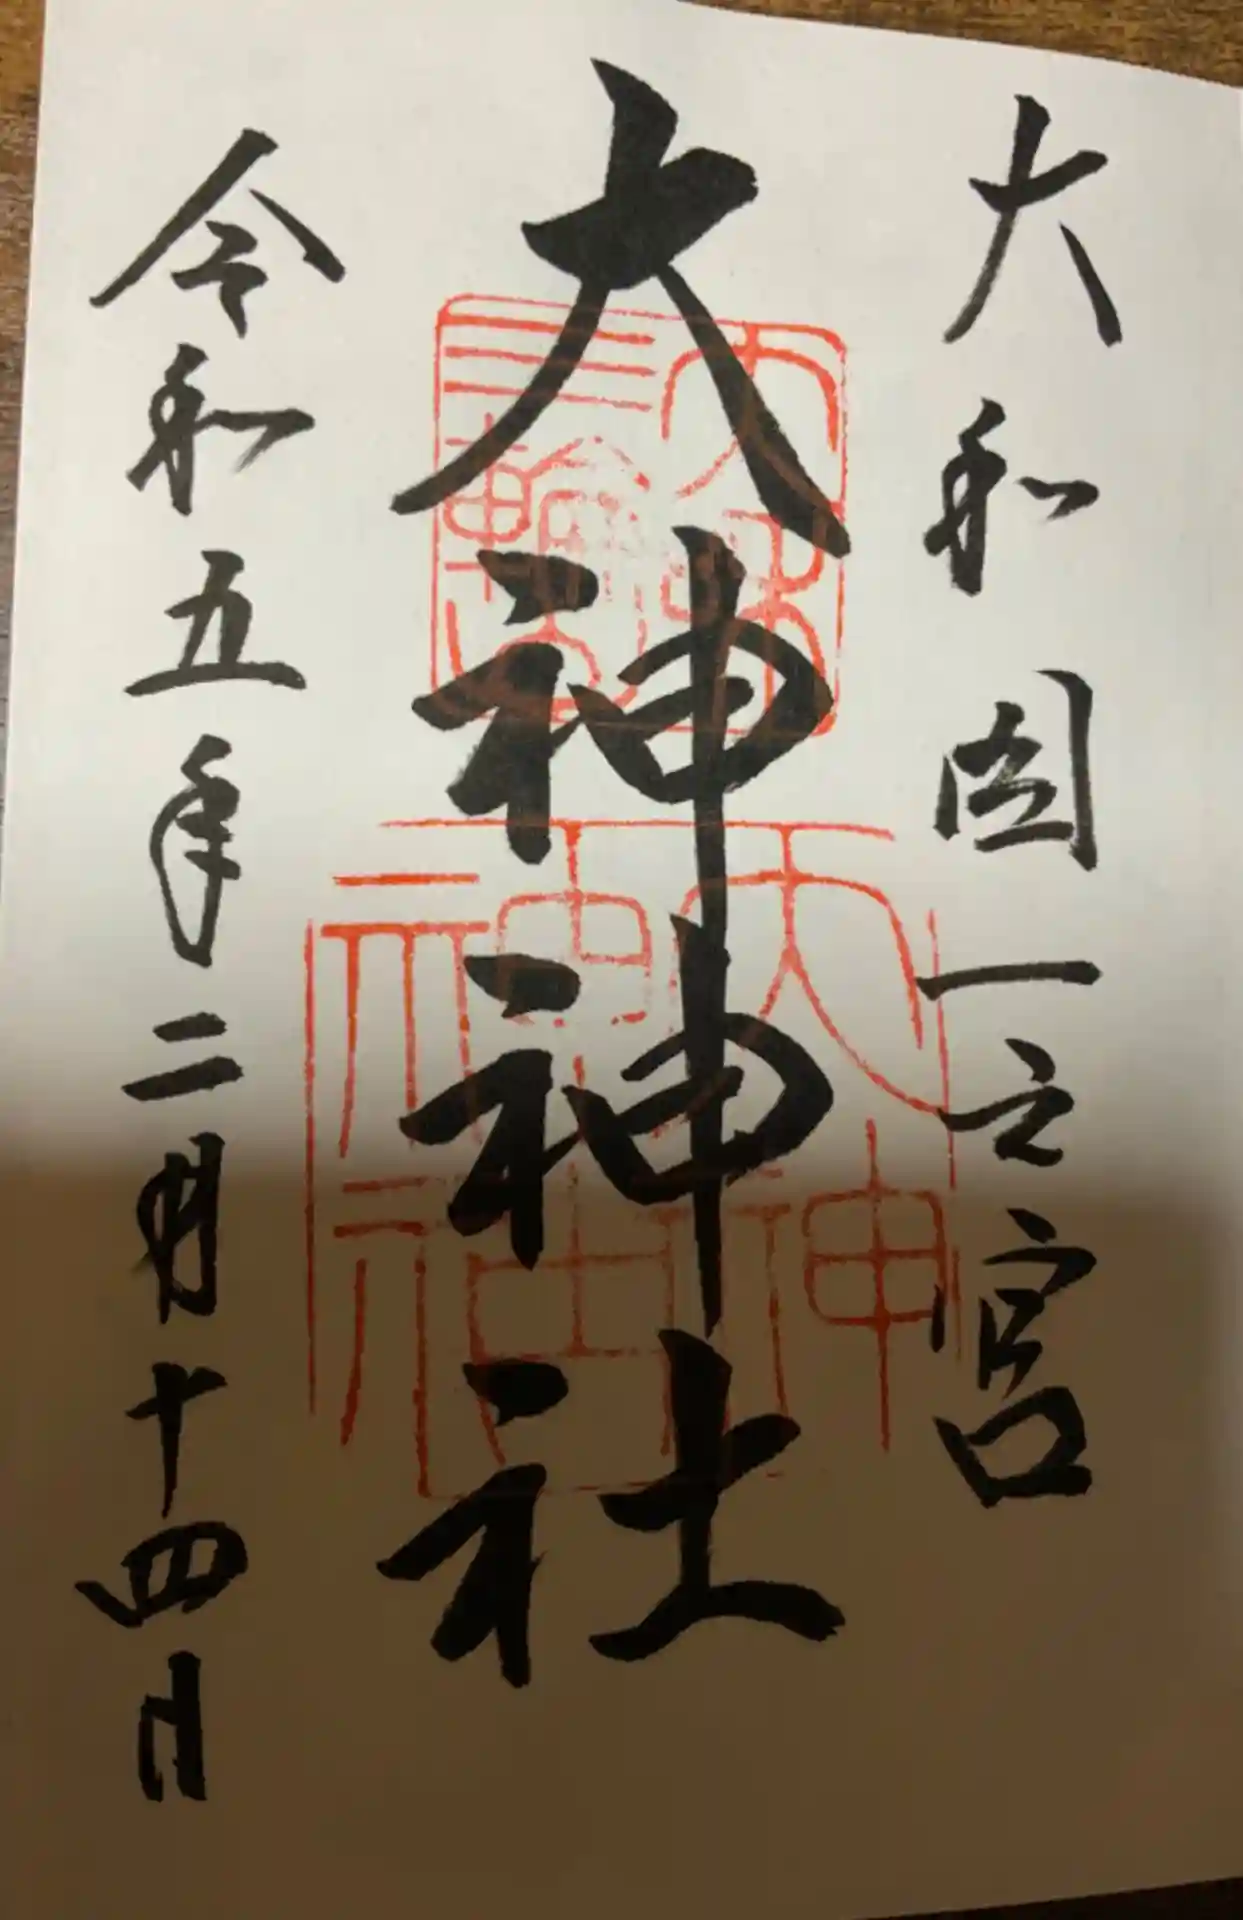 大和国一之宮
大神神社
令和五年二月十四日
大神
神社